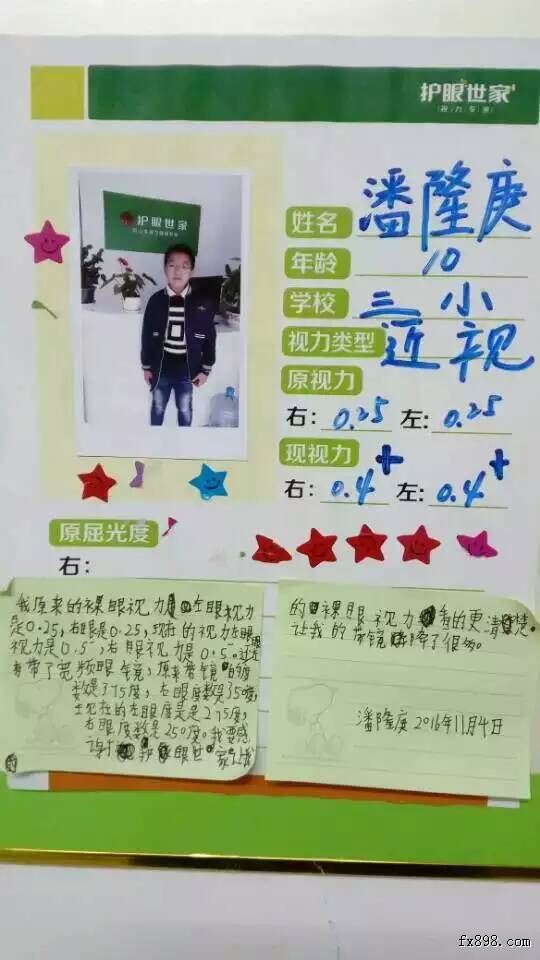 护眼世家
视力专家
护眼世家
姓名 潘隆庚
年龄 10
学校 三小
视力类型 近视
原视力
右: 0.25 左: 0.25
现视力
右: 0.4+ 左: 0.4+
原屈光度
右:
我原来的裸眼视力 左眼视力
是0.25,右眼是0.25,现在的视力左眼
视力是0.5-,右眼视力是0.5-。还
有带了宽频眼镜,原来带镜的度
数是375度,右眼度数是350度,
现在的左眼度是是275度,
右眼度数是250度。我要感
谢 护眼世家让我
的裸眼视力 看的更清楚。
让我的 镜 降了很多。
潘隆庚 2016年11月4日
fx898.com